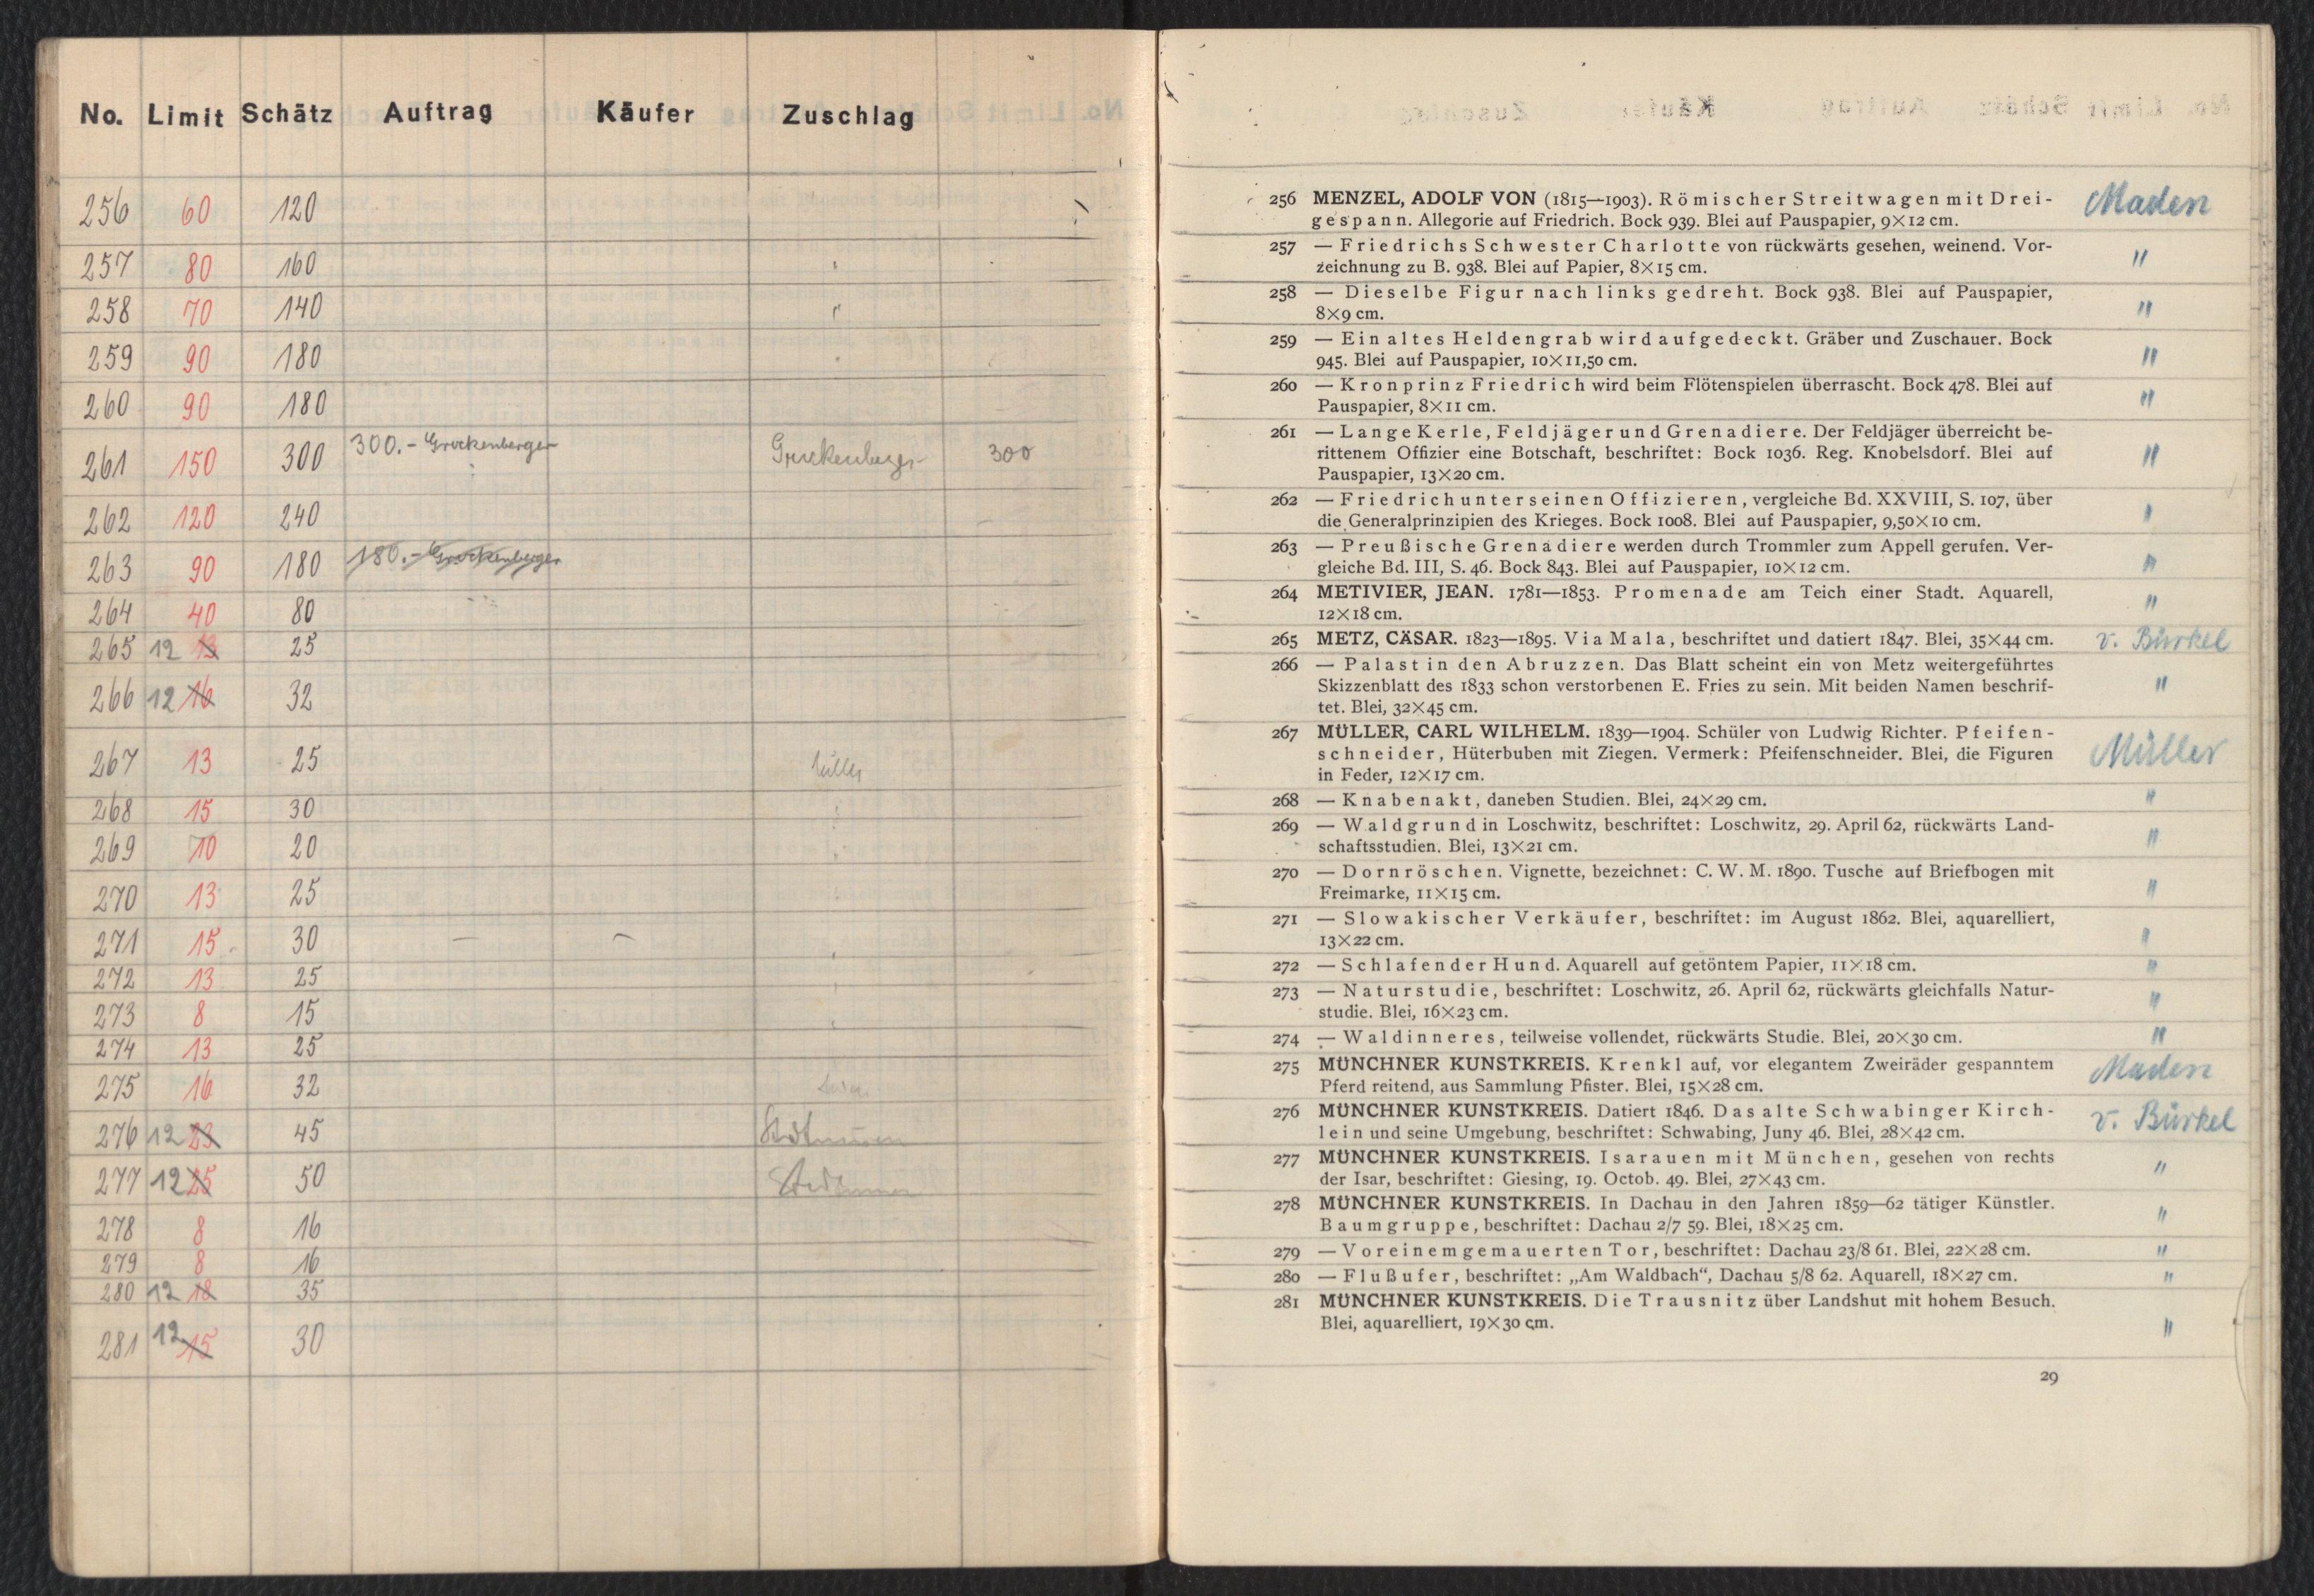 No. Limit Schätz Auftrag Käufer Zuschlag
256 60 120
257 80 160
258 70 140
259 90 180
260 90 180
261 150 300 300.- Gruckenberger Gruckenberger 300
262 120 240
263 90 180 180.- Gruckenberger
264 40 80
265 12 13 25
266 12 16 32
267 13 25 Müller
268 15 30
269 10 20
270 13 25
271 15 30
272 13 25
273 8 15
274 13 25
275 16 32
276 12 23 45
277 12 25 50
278 8 16
279 8 16
280 12 18 35
281 12 15 30
256 MENZEL, ADOLF VON (1815—1903). Römischer Streitwagen mit Drei- Maden
gespann. Allegorie auf Friedrich. Bock 939. Blei auf Pauspapier, 9×12 cm.
257 — Friedrichs Schwester Charlotte von rückwärts gesehen, weinend. Vor- "
zeichnung zu B. 938. Blei auf Papier, 8×15 cm.
258 — Dieselbe Figur nach links gedreht. Bock 938. Blei auf Pauspapier, "
8×9 cm.
259 — Ein altes Heldengrab wird aufgedeckt. Gräber und Zuschauer. Bock "
945. Blei auf Pauspapier, 10×11,50 cm.
260 — Kronprinz Friedrich wird beim Flötenspielen überrascht. Bock 478. Blei auf "
Pauspapier, 8×11 cm.
261 — Lange Kerle, Feldjäger und Grenadiere. Der Feldjäger überreicht be- "
rittenem Offizier eine Botschaft, beschriftet: Bock 1036. Reg. Knobelsdorf. Blei auf
Pauspapier, 13×20 cm.
262 — Friedrich unter seinen Offizieren, vergleiche Bd. XXVIII, S. 107, über "
die Generalprinzipien des Krieges. Bock 1008. Blei auf Pauspapier, 9,50×10 cm.
263 — Preußische Grenadiere werden durch Trommler zum Appell gerufen. Ver- "
gleiche Bd. III, S. 46. Bock 843. Blei auf Pauspapier, 10×12 cm.
264 METIVIER, JEAN. 1781—1853. Promenade am Teich einer Stadt. Aquarell, "
12×18 cm.
265 METZ, CÄSAR. 1823—1895. Via Mala, beschriftet und datiert 1847. Blei, 35×44 cm. v. Bürkel
266 — Palast in den Abruzzen. Das Blatt scheint ein von Metz weitergeführtes "
Skizzenblatt des 1833 schon verstorbenen E. Fries zu sein. Mit beiden Namen beschrif-
tet. Blei, 32×45 cm.
267 MÜLLER, CARL WILHELM. 1839—1904. Schüler von Ludwig Richter. Pfeifen- Müller
schneider, Hüterbuben mit Ziegen. Vermerk: Pfeifenschneider. Blei, die Figuren
in Feder, 12×17 cm.
268 — Knabenakt, daneben Studien. Blei, 24×29 cm. "
269 — Waldgrund in Loschwitz, beschriftet: Loschwitz, 29. April 62, rückwärts Land- "
schaftsstudien. Blei, 13×21 cm.
270 — Dornröschen. Vignette, bezeichnet: C. W. M. 1890. Tusche auf Briefbogen mit "
Freimarke, 11×15 cm.
271 — Slowakischer Verkäufer, beschriftet: im August 1862. Blei, aquarelliert, "
13×22 cm.
272 — Schlafender Hund. Aquarell auf getöntem Papier, 11×18 cm. "
273 — Naturstudie, beschriftet: Loschwitz, 26. April 62, rückwärts gleichfalls Natur- "
studie. Blei, 16×23 cm.
274 — Waldinneres, teilweise vollendet, rückwärts Studie. Blei, 20×30 cm. "
275 MÜNCHNER KUNSTKREIS. Krenkl auf, vor elegantem Zweiräder gespanntem Maden
Pferd reitend, aus Sammlung Pfister. Blei, 15×28 cm.
276 MÜNCHNER KUNSTKREIS. Datiert 1846. Das alte Schwabinger Kirch- v. Bürkel
lein und seine Umgebung, beschriftet: Schwabing, Juny 46. Blei, 28×42 cm.
277 MÜNCHNER KUNSTKREIS. Isarauen mit München, gesehen von rechts "
der Isar, beschriftet: Giesing, 19. Octob. 49. Blei, 27×43 cm.
278 MÜNCHNER KUNSTKREIS. In Dachau in den Jahren 1859—62 tätiger Künstler. "
Baumgruppe, beschriftet: Dachau 2/7 59. Blei, 18×25 cm.
279 — Vor einem gemauerten Tor, beschriftet: Dachau 23/8 61. Blei, 22×28 cm. "
280 — Flußufer, beschriftet: „Am Waldbach“, Dachau 5/8 62. Aquarell, 18×27 cm. "
281 MÜNCHNER KUNSTKREIS. Die Trausnitz über Landshut mit hohem Besuch. "
Blei, aquarelliert, 19×30 cm.
29